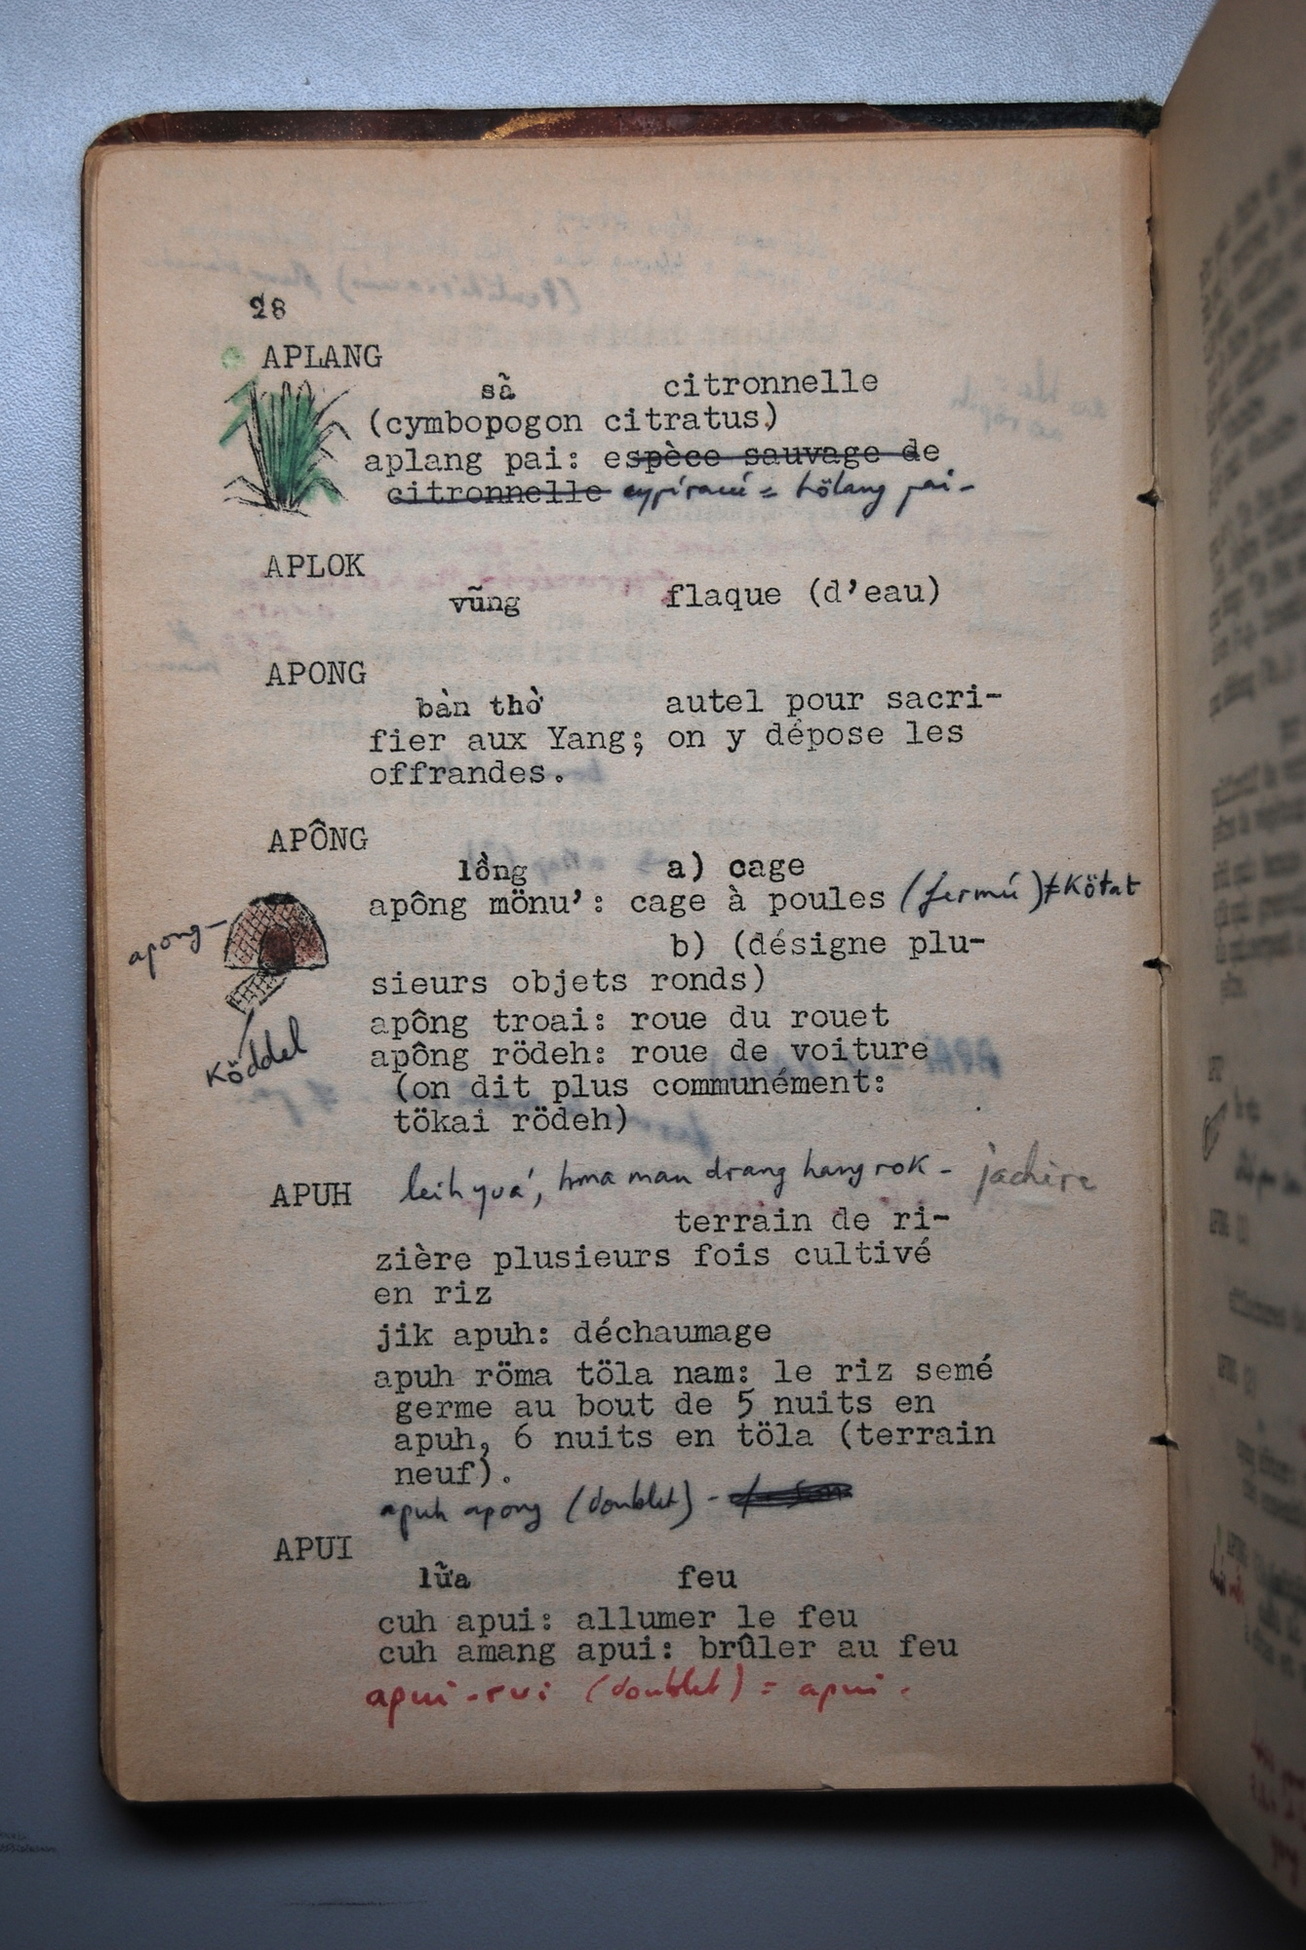 28
APLANG
sả citronnelle
(cymbopogon citratus)
aplang pai: espèce sauvage de
citronnelle cypéracée = hölang pai -
APLOK
vũng flaque (d'eau)
APONG
bàn thờ autel pour sacri-
fier aux Yang; on y dépose les
offrandes.
APÔNG
lồng a) cage
apông mönu': cage à poules (fermé) ≠ Kötat
apong
b) (désigne plu-
sieurs objets ronds)
apông troai: roue du rouet
Köddel
apông rödeh: roue de voiture
(on dit plus communément:
tökai rödeh)
APUH hma man drang hang rok - jachère
terrain de ri-
zière plusieurs fois cultivé
en riz
jik apuh: déchaumage
apuh röma töla nam: le riz semé
germe au bout de 5 nuits en
apuh, 6 nuits en töla (terrain
neuf).
apuh apong (doublet) -
APUI
lửa feu
cuh apui: allumer le feu
cuh amang apui: brûler au feu
apui-rui (doublet) = apui.